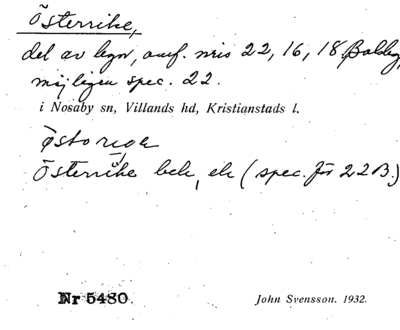 Österrike,
del av legor, omf. nris 22, 16, 18 Balsby,
möjligen spec. 22.
i Nosaby sn, Villands hd, Kristianstads l.
Österrike bek, ek (spec. för 22B.)
Nr 5430
John Svensson. 1932.